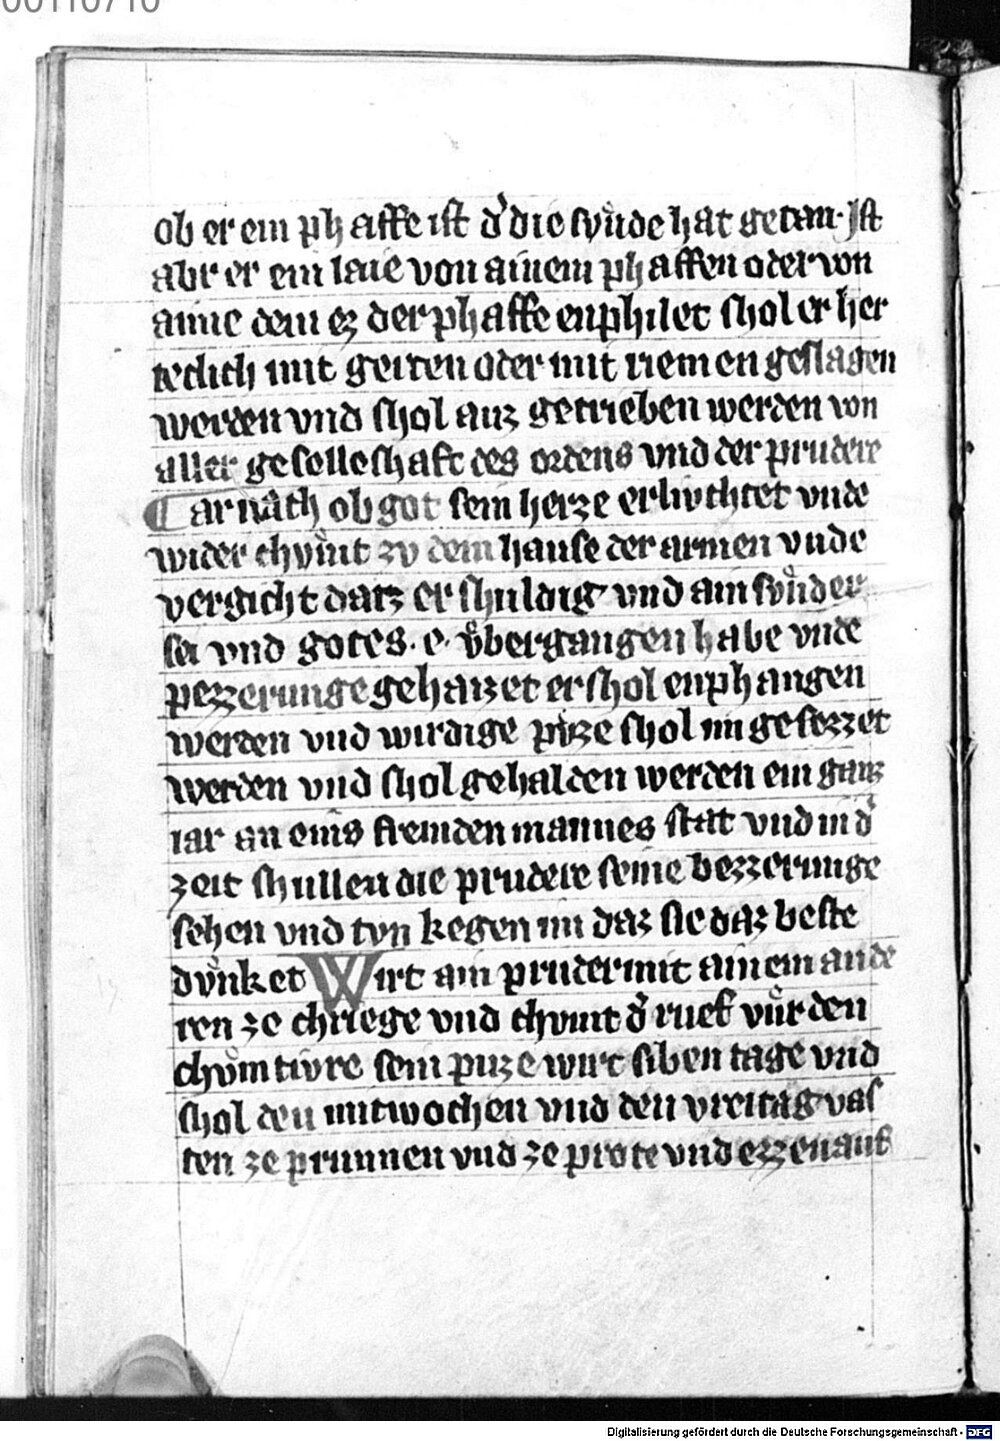 00110710
ob er ein phaffe ist dͤ die svͤnde hat getan. Ist
abr er ein laie von ainem phaffen oder von
aime dem ez der phaffe enphilet shol er her
teclich mit gerten oder mit riemen geslagen
werden vnd shol auz getrieben werden von
aller geselleshaft des ordens vnd der prudere
Darnach ob got sein herze erlivchtet vnde
wider chvͦmt zv dem hause der armen vnde
vergicht datz er shuldig vnd ain svͤnder
sei vnd gotes. e. vͤbergangen habe vnde
pezzerunge gehaizet er shol enphangen
werden vnd wirdige pvze shol im gesezzet
werden vnd shol gehalden werden ein ganz
iar an eins fremden mannes stat vnd in dͤ
zeit shullen die prudere seine bezzerunge
sehen vnd tvn kegen im daz sie daz beste
dvͤnket Wirt ain pruder mit ainem ande
ren ze chriege vnd chvmt dͤ ruef vuͤr den
chvͦmtivre sein puze wirt siben tage vnd
shol den mitwochen vnd den vreitag vas
ten ze prunnen vnd ze prote vnd ezzen auf
Digitalisierung gefördert durch die Deutsche Forschungsgemeinschaft - DFG